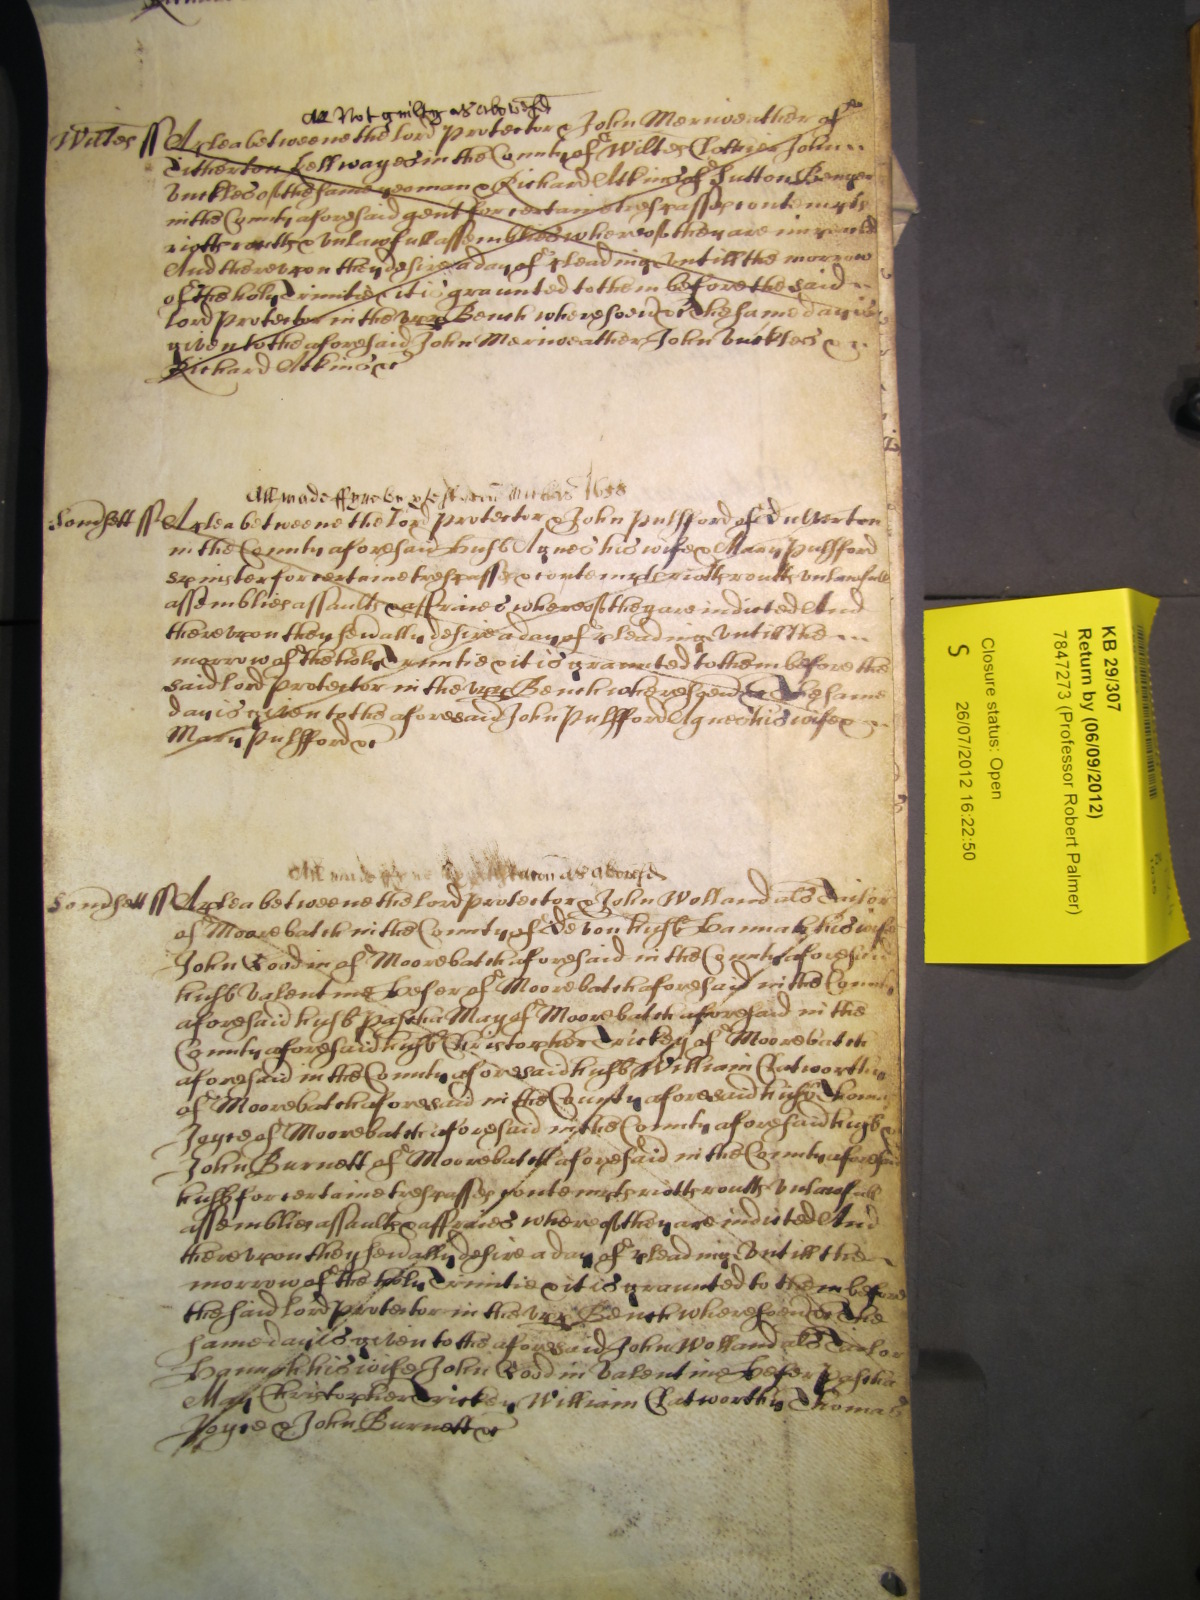 All Not guilty as abovesd
Wiltes ss A plea betweene the Lord Protector & John Merriweather of
Titherton Kellwayes in the County of Wiltes Clothier John
Buckles of the same yeoman & Richard Atkins of Sutton Benger
in the County aforesaid gent for certaine trespasses contempts
riotts routts & unlawfull assemblies whereof they are
And thereupon they desire a day of pleading untill the morrow
of the holy Trinitie & it is graunted to them before the said
Lord Protector in the upper Bench wheresoever &c The same day is
given to the aforesaid John Merriweather John Buckles &
Richard Atkins &c
All made ffyne 1658
Somersett ss A plea betweene the Lord Protector & John Pulsford of Dulverton
in the County aforesaid husb Agnes his wife & Mary Pulsford
spinster for certaine trespasses contempts riotts routts unlawfull
assemblies assaults & affraies whereof they are indicted And
thereupon they sevally desire a day of pleading untill the
morrow of the holy Trinitie & it is graunted to them before the
said Lord Protector in the upper Bench wheresoever &c The same
day is given to the aforesaid John Pulsford Agnes his wife &
Mary Pulsford &c
All made fyne as abovesd
Somersett ss A plea betweene the Lord Protector & John Wolland als Tailor
of Moorebatch in the County of Devon husb Hannah his wife
John Goodin of Moorebatch aforesaid in the County aforesaid
husb Valentine of Moorebatch aforesaid in the County
aforesaid husb Pascha May of Moorebatch aforesaid in the
County aforesaid husb Christopher Trickey of Moorebatch
aforesaid in the County aforesaid husb William Chatworthy
of Moorebatch aforesaid in the County aforesaid husb Thomas
Joyce of Moorebatch aforesaid in the County aforesaid husb &
John Burnett of Moorebatch aforesaid in the County aforesaid
husb for certaine trespasses contempts riotts routts unlawfull
assemblies assaults & affraies whereof they are indicted And
thereupon they sevally desire a day of pleading untill the
morrow of the holy Trinitie & it is graunted to them before
the said Lord Protector in the upper Bench wheresoever &c The
same day is given to the aforesaid John Wolland als Tailor
Hannah his wife John Goodin Valentine Pascha
May Christopher Trickey William Chatworthy Thomas
Joyce & John Burnett &c
KB 29/307
Return by (06/09/2012)
7847273 (Professor Robert Palmer)
Closure status: Open
S 26/07/2012 16:22:50